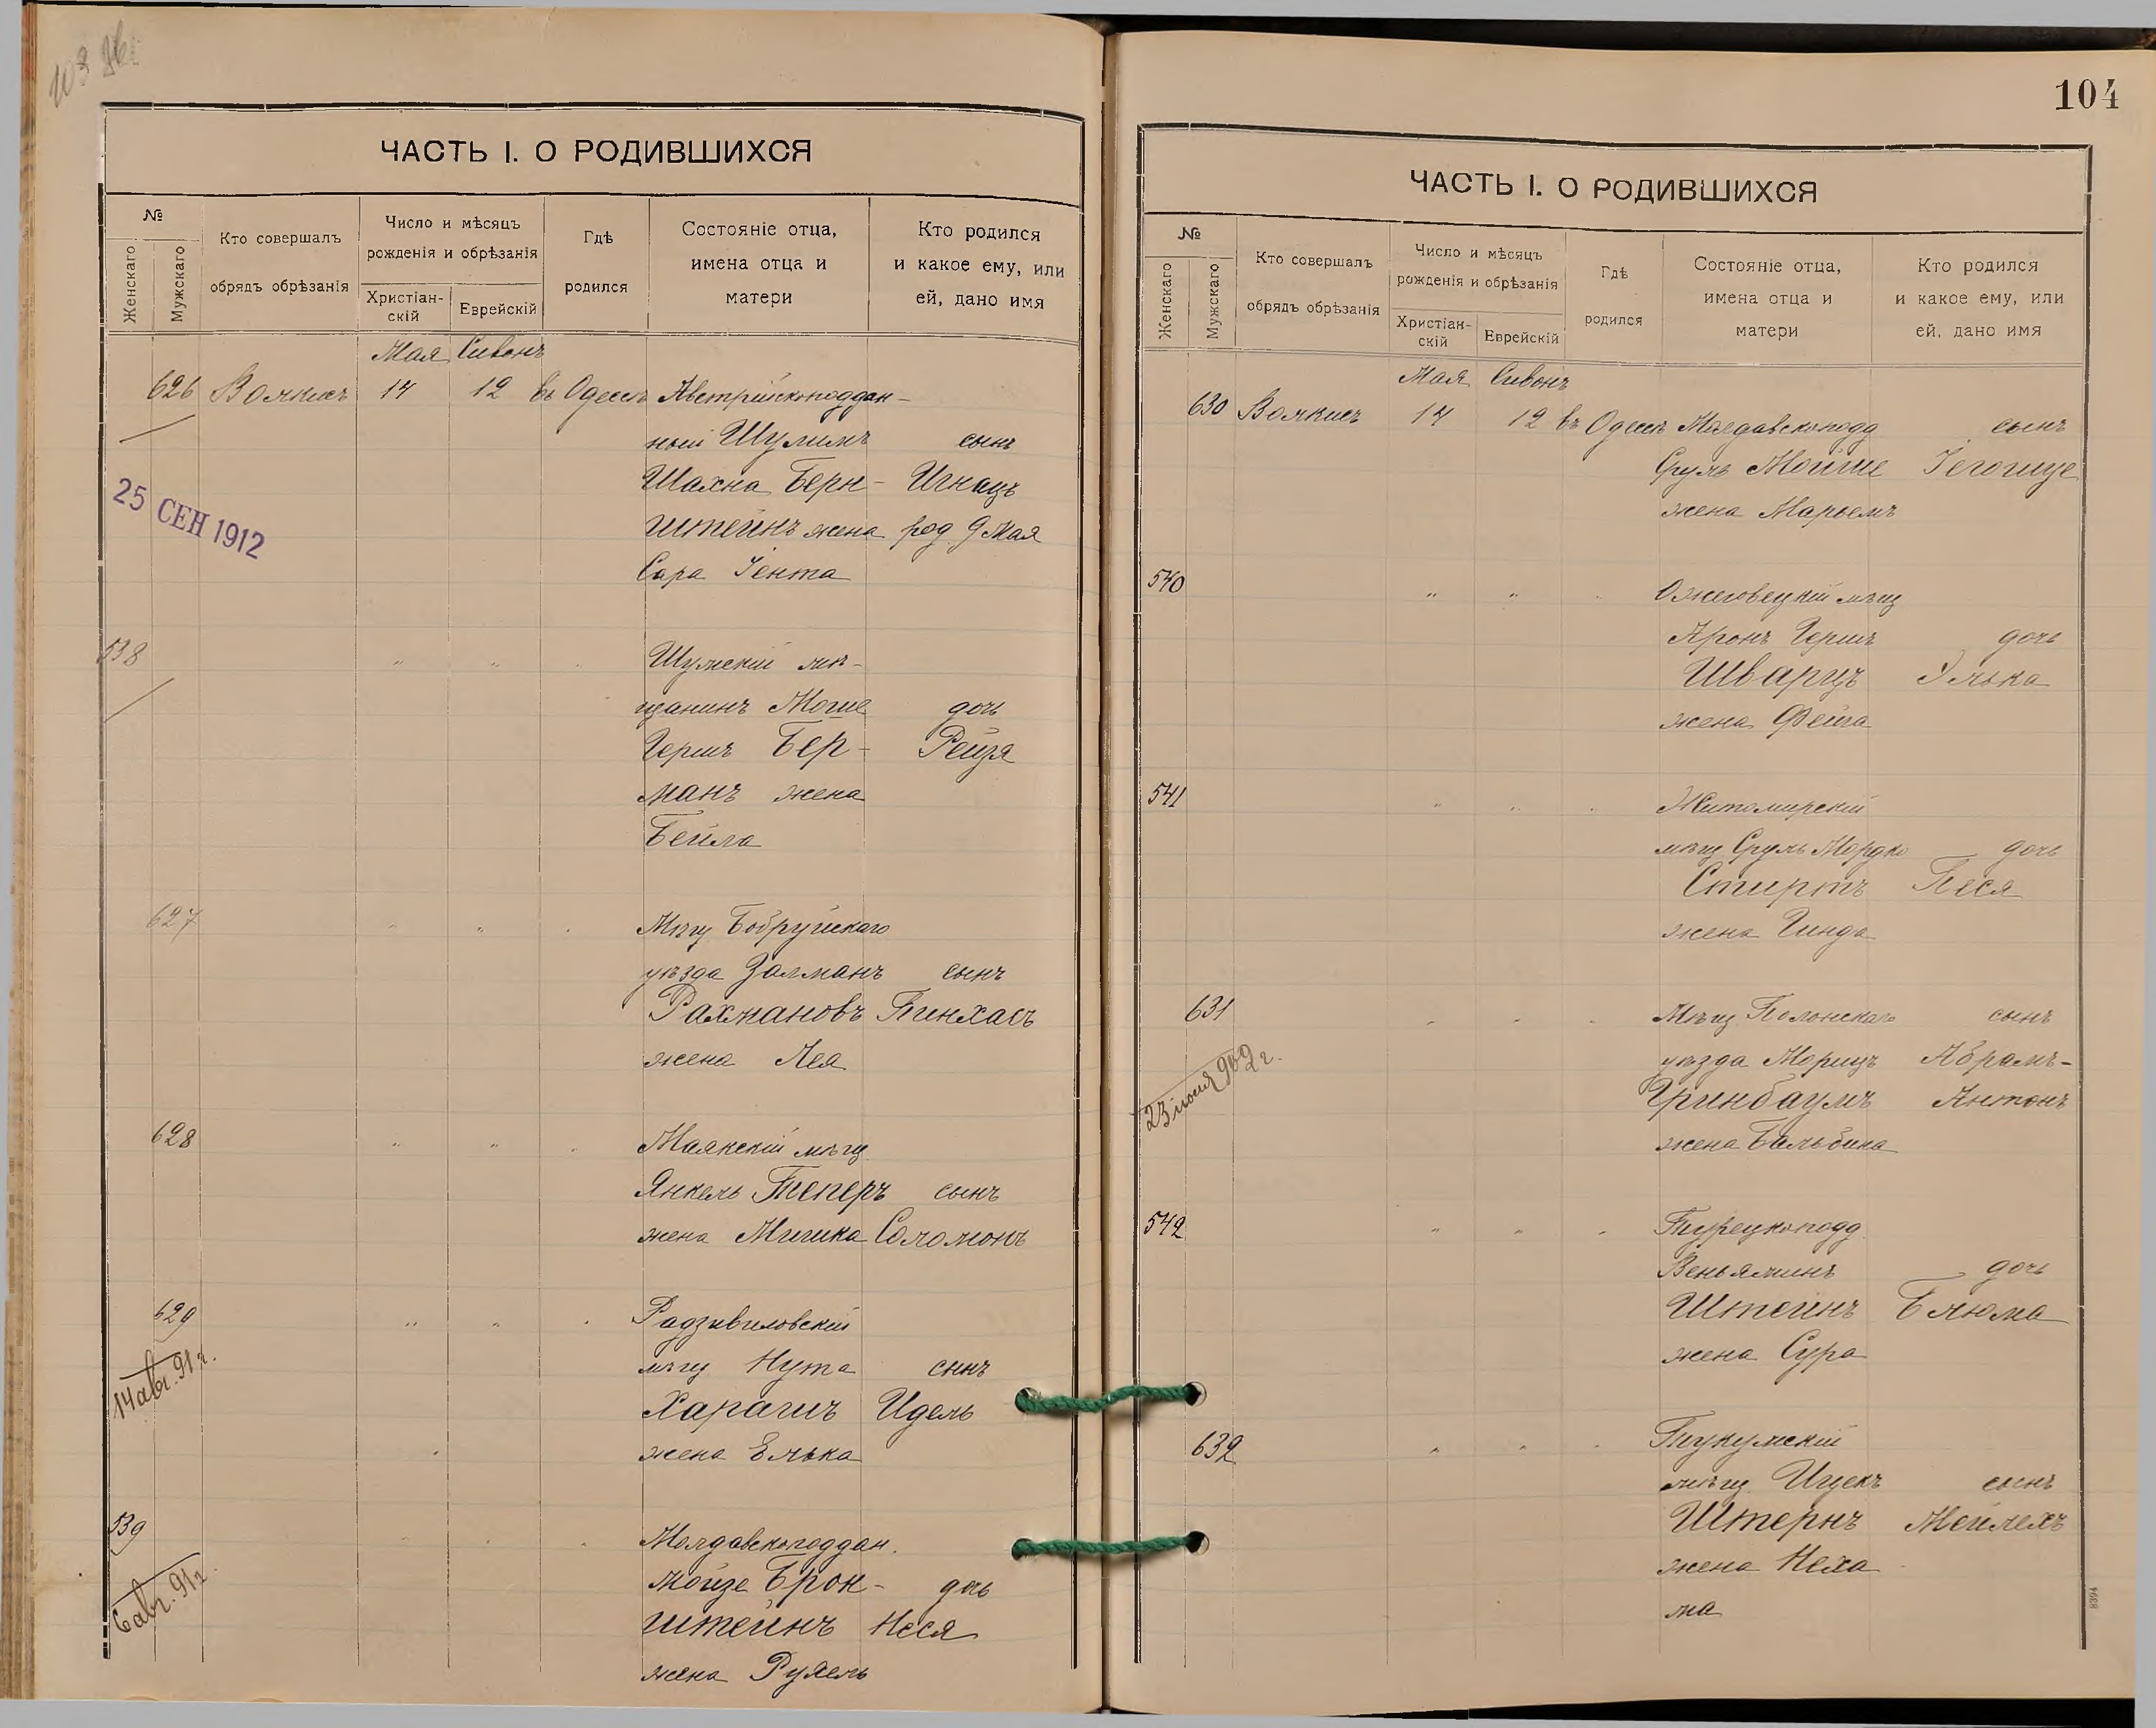 103 об.
ЧАСТЬ I. О РОДИВШИХСЯ
№
Женскаго
Мужскаго
Кто совершалъ
обрядъ обрѣзанія
Число и мѣсяцъ
рожденія и обрѣзанія
Христіан-
скій
Еврейскій
Гдѣ
родился
Состояніе отца,
имена отца и
матери
Кто родился
и какое ему, или
ей, дано имя
Мая Сивонъ
626 14 12 въ Одессѣ Австрійскоподдан-
ный Шулимъ сынъ
Шахна Берн- Игнацъ
штейнъ жена род. 9 Мая
Сара Іента
25 СЕН 1912
538 " " " Шумскій мѣ-
щанинъ Моше дочь
Гершъ Бер- Рейзя
манъ жена
Бейла
627 " " " Мѣщ Бобруйскаго
уѣзда Залманъ сынъ
Рахмановъ Пинхасъ
жена Лея
628 " " " Маякскій мѣщ
Янкель Теперъ сынъ
жена Соломонъ
629 " " " Радзивиловскій
мѣщ Нута сынъ
Идель
жена Элька
14 авг. 91 г.
539 " " " Молдавскоподдан.
Мойзе Брон- дочь
штейнъ Неся
жена Рухель
6 авг. 91 г.
104
ЧАСТЬ I. О РОДИВШИХСЯ
№
Женскаго
Мужскаго
Кто совершалъ
обрядъ обрѣзанія
Число и мѣсяцъ
рожденія и обрѣзанія
Христіан-
скій
Еврейскій
Гдѣ
родился
Состояніе отца,
имена отца и
матери
Кто родился
и какое ему, или
ей, дано имя
Мая Сивонъ
630 14 12 въ Одессѣ Молдавскоподд сынъ
Сруль Мойше Іегошуе
жена Марьемъ
540 " " " Ожеговецкій мѣщ
Аронъ Гершъ дочь
Шварцъ Элька
жена Фейга
541 " " " Житомирскій
мѣщ Сруль Мордко дочь
Песя
жена Гинда
631 " " " Мѣщ Полонскаго сынъ
уѣзда Морицъ Абрамъ-
Гринбаумъ Антонъ
жена Бальбина
23 909 г.
542 " " " Турецкоподд
Веньяминъ дочь
Штейнъ Блюма
жена Сура
632 " " " Тукумскій
мѣщ Ицекъ сынъ
Штернъ Мейлехъ
жена Неха
ма
8394